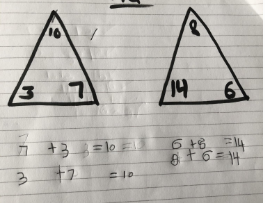 10
3 7
8
14 6
7 +3 =10
3 +7 =10
6 +8 =14
8 + 6 =14